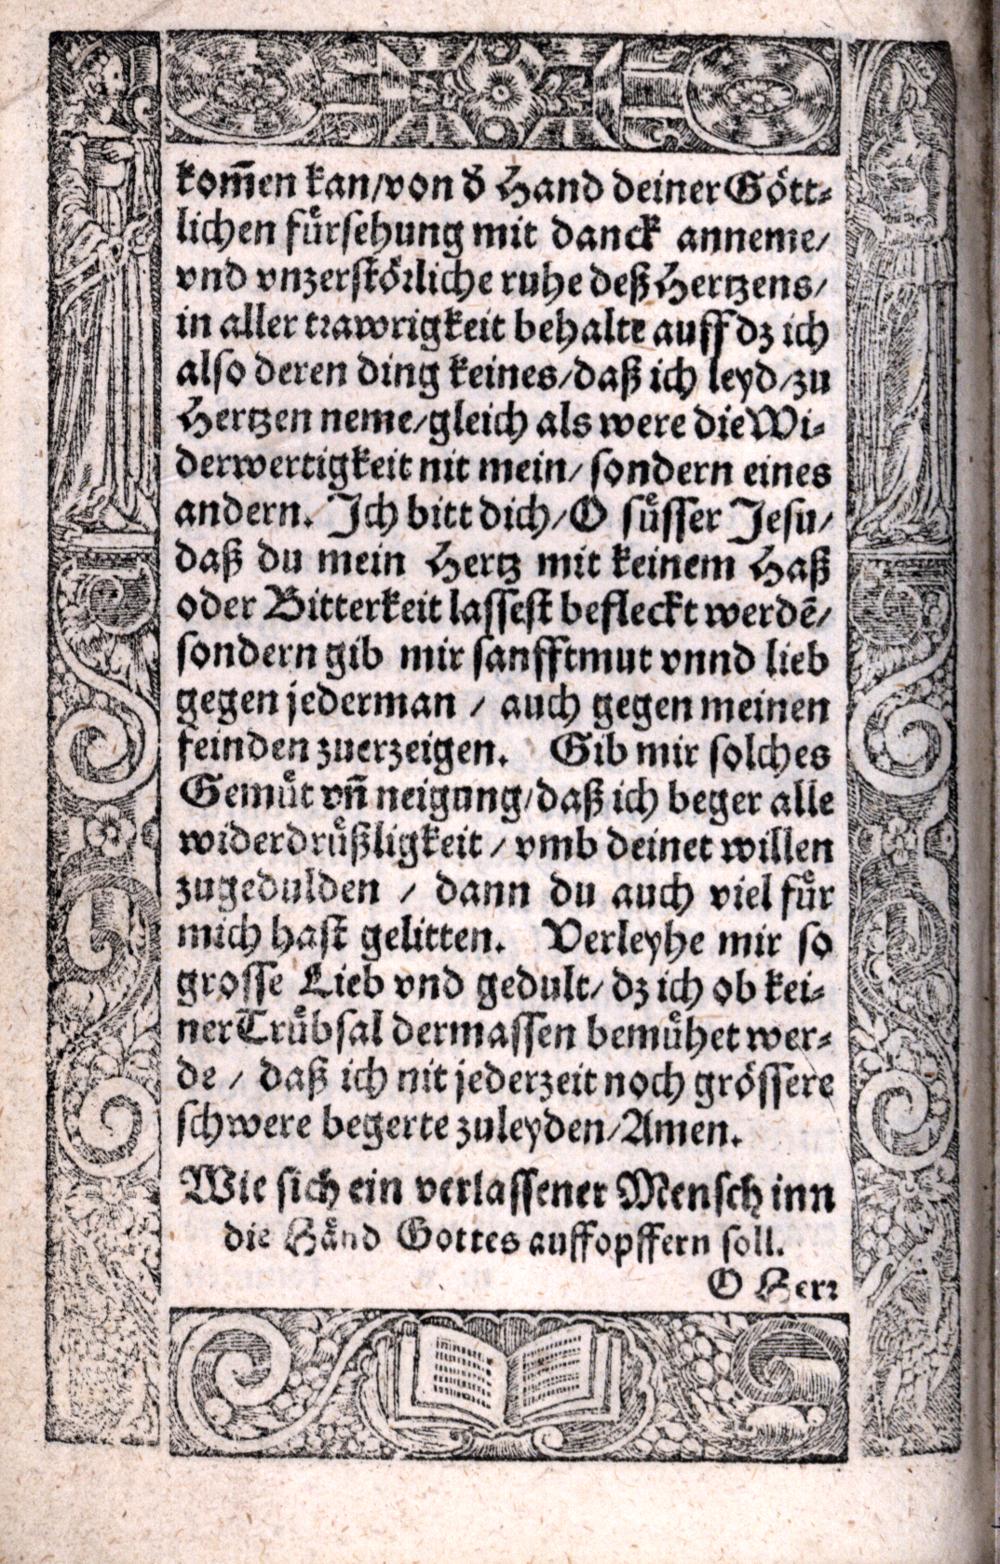 kom̄en kan/von d̕ Hand deiner Gött⸗
lichen fuͤrsehung mit danck anneme/
vnd vnzerstörliche ruhe deß Hertzens/
in aller trawrigkeit behalte auff dz ich
also deren ding keines/daß ich leyd/zu
Hertzen neme/gleich als were die Wi⸗
derwertigkeit nit mein/ sondern eines
andern. Ich bitt dich/O suͤsser Jesu/
daß du mein Hertz mit keinem Haß
oder Bitterkeit lassest befleckt werdē/
sondern gib mir sanfftmut vnnd lieb
gegen jederman / auch gegen meinen
feinden zuerzeigen. Gib mir solches
Gemuͤt vn̄ neigung/daß ich beger alle
widerdruͤßligkeit / vmb deinet willen
zugedulden / dann du auch viel fuͤr
mich hast gelitten. Verleyhe mir so
grosse Lieb vnd gedult/ dz ich ob kei⸗
ner Truͤbsal dermassen bemuͤhet wer⸗
de / daß ich nit jederzeit noch grössere
schwere begerte zuleyden/Amen.
Wie sich ein verlassener Mensch inn
die Händ Gottes auffopffern soll.
O Herr